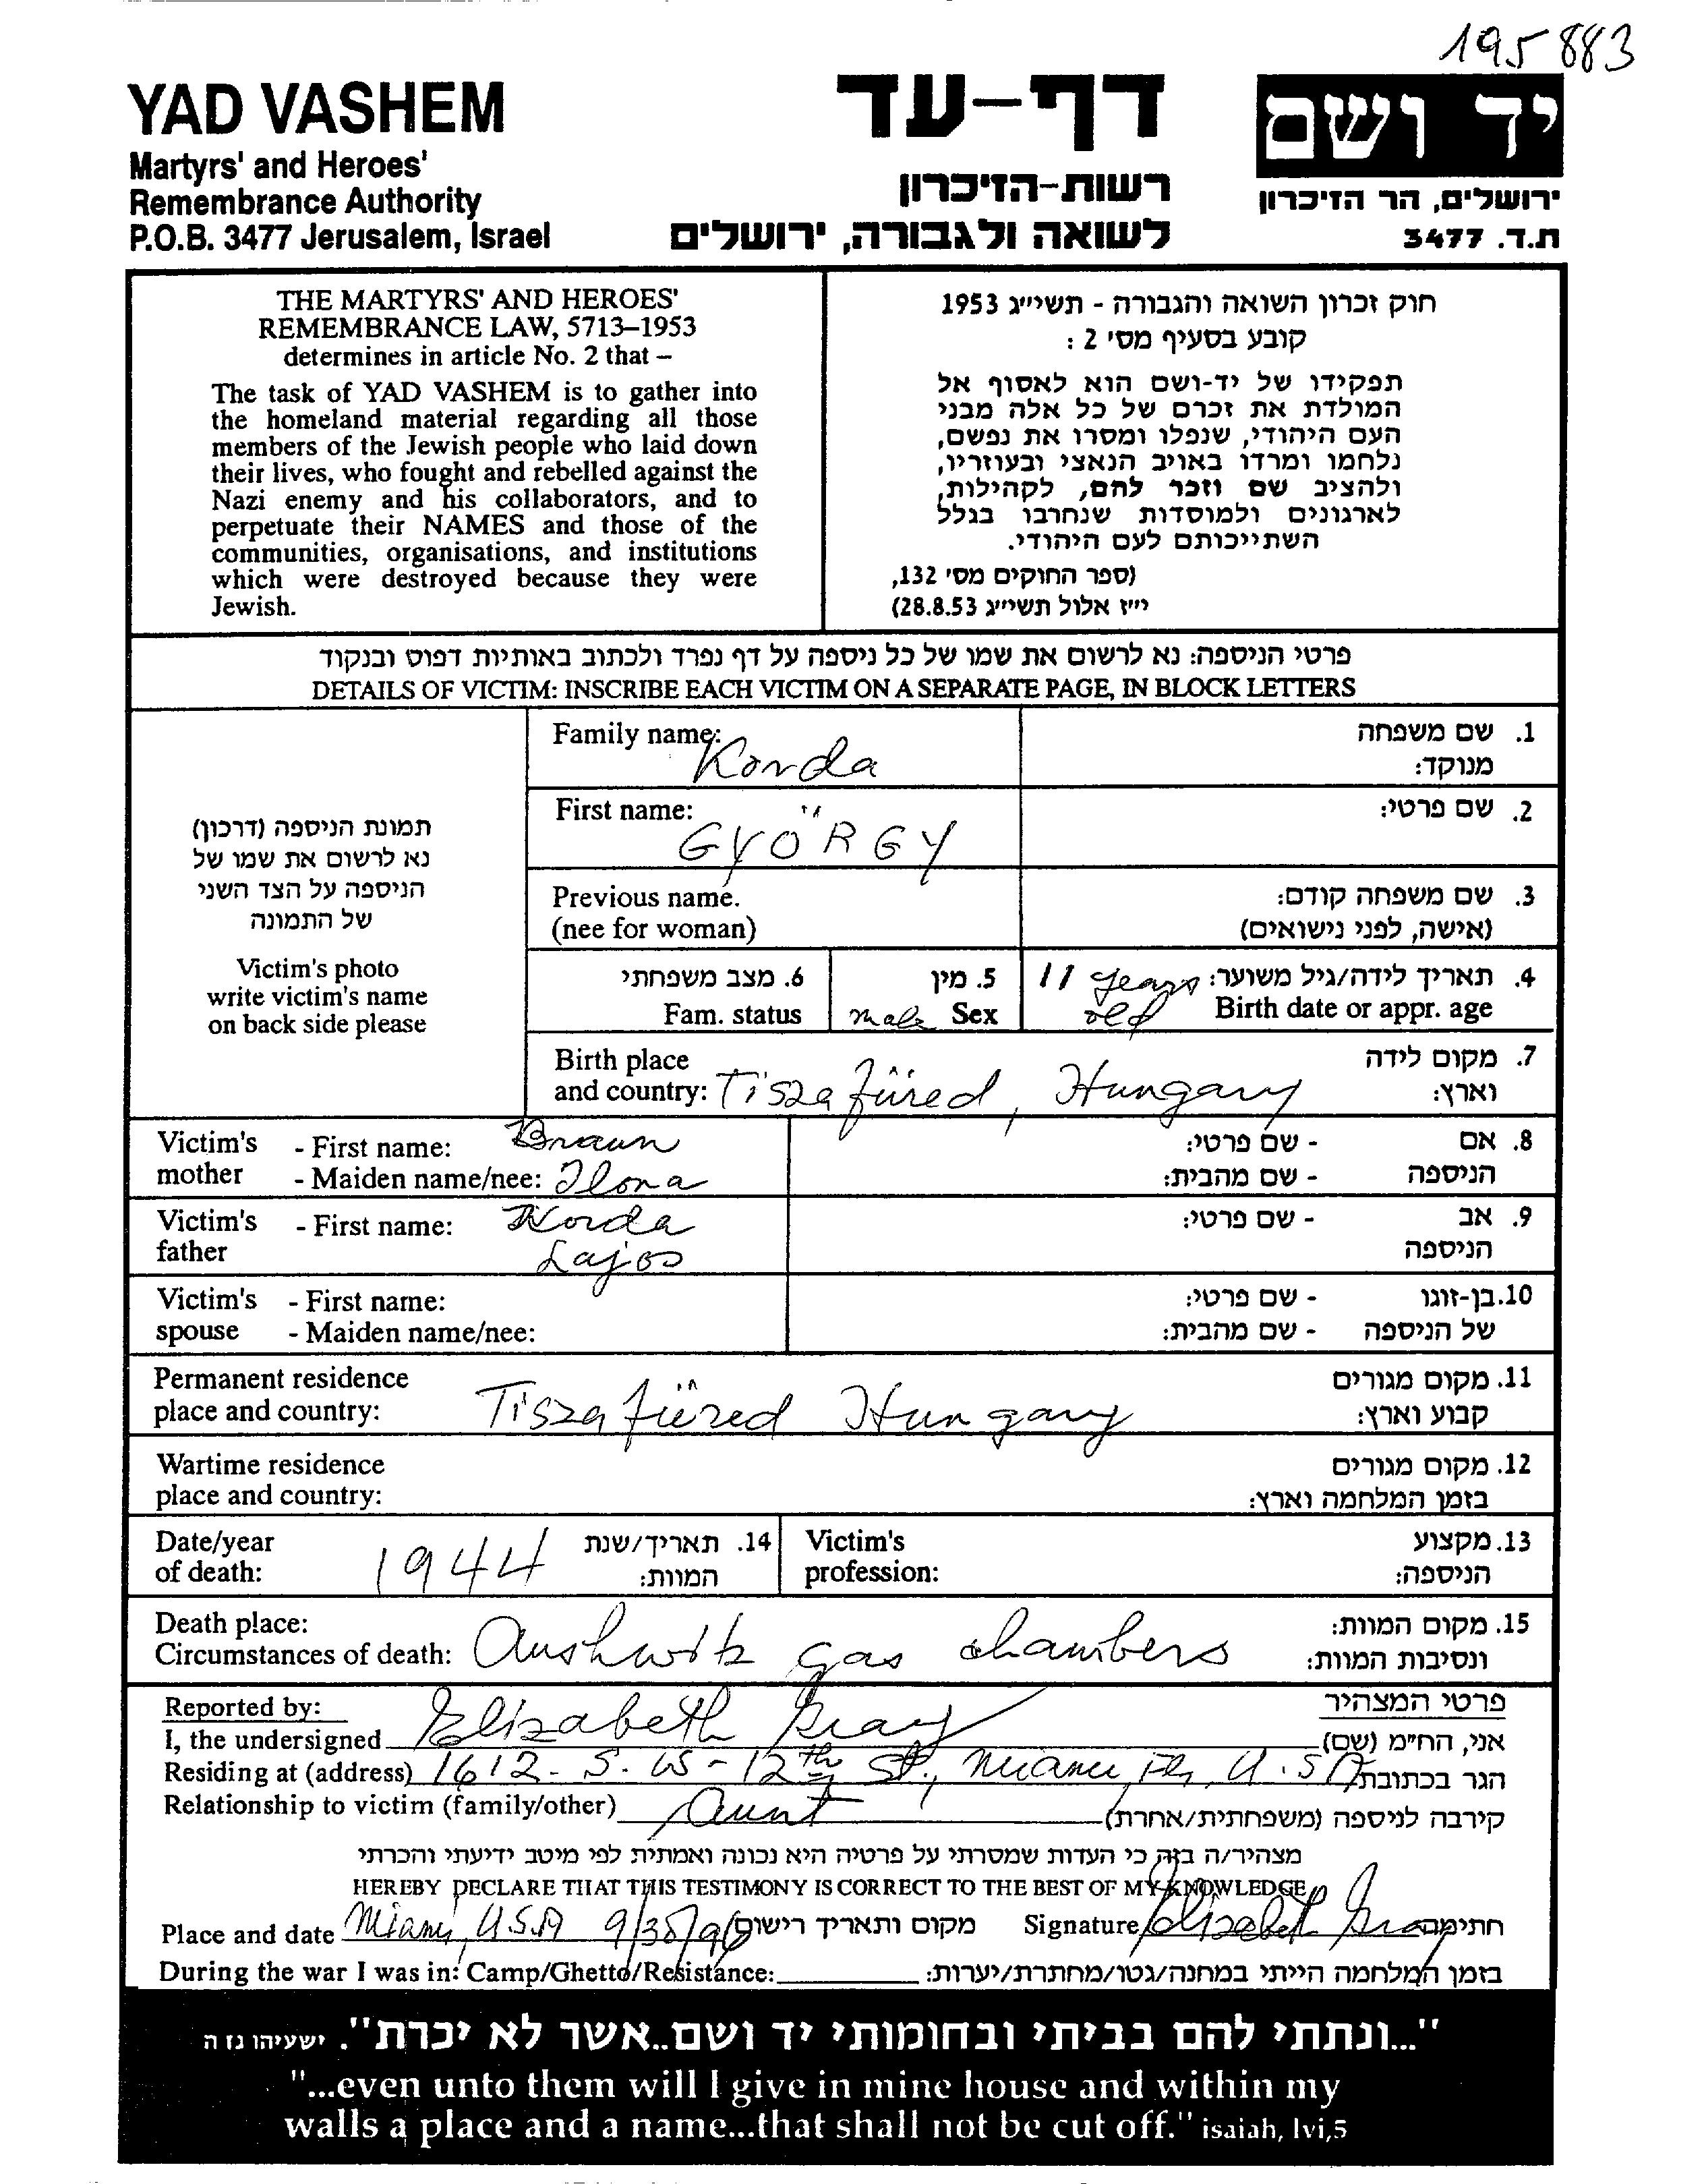 195883
YAD VASHEM
Martyrs' and Heroes'
Remembrance Authority
P.O.B. 3477 Jerusalem, Israel
דף-עד
רשות-הזיכרון
לשואה ולגבורה, ירושלים
יד ושם
ירושלים, הר הזיכרון
ת.ד. 3477
THE MARTYRS' AND HEROES'
REMEMBRANCE LAW, 5713–1953
determines in article No. 2 that –
The task of YAD VASHEM is to gather into
the homeland material regarding all those
members of the Jewish people who laid down
their lives, who fought and rebelled against the
Nazi enemy and his collaborators, and to
perpetuate their NAMES and those of the
communities, organisations, and institutions
which were destroyed because they were
Jewish.
חוק זכרון השואה והגבורה - תשי״ג 1953
קובע בסעיף מס' 2 :
תפקידו של יד-ושם הוא לאסוף אל
המולדת את זכרם של כל אלה מבני
העם היהודי, שנפלו ומסרו את נפשם,
נלחמו ומרדו באויב הנאצי ובעוזריו,
ולהציב שם וזכר להם, לקהילות,
לארגונים ולמוסדות שנחרבו בגלל
השתייכותם לעם היהודי.
(ספר החוקים מס' 132,
י״ז אלול תשי״ג 28.8.53)
פרטי הניספה: נא לרשום את שמו של כל ניספה על דף נפרד ולכתוב באותיות דפוס ובנקוד
DETAILS OF VICTIM: INSCRIBE EACH VICTIM ON A SEPARATE PAGE, IN BLOCK LETTERS
תמונת הניספה (דרכון)
נא לרשום את שמו של
הניספה על הצד השני
של התמונה
Victim's photo
write victim's name
on back side please
Family name: Korda
1. שם משפחה
מנוקד:
First name: GYÖRGY
2. שם פרטי:
Previous name.
(nee for woman)
3. שם משפחה קודם:
(אישה, לפני נישואים)
6. מצב משפחתי
Fam. status
5. מין
male Sex
4. תאריך לידה/גיל משוער: 11 years
Birth date or appr. age old
Birth place
and country: Tiszafüred, Hungary
7. מקום לידה
וארץ:
Victim's - First name: Braun
mother - Maiden name/nee: Ilona
8. אם - שם פרטי:
הניספה - שם מהבית:
Victim's - First name: Korda
father Lajos
9. אב - שם פרטי:
הניספה
Victim's - First name:
spouse - Maiden name/nee:
10. בן-זוגו - שם פרטי:
של הניספה - שם מהבית:
Permanent residence
place and country: Tiszafüred Hungary
11. מקום מגורים
קבוע וארץ:
Wartime residence
place and country:
12. מקום מגורים
בזמן המלחמה וארץ:
Date/year
of death: 1944
14. תאריך/שנת
המוות:
Victim's
profession:
13. מקצוע
הניספה:
Death place:
Circumstances of death: Aushwitz gas chambers
15. מקום המוות:
ונסיבות המוות:
Reported by:
פרטי המצהיר
I, the undersigned Elizabeth Gray אני, הח״מ (שם)
Residing at (address) 1612 - S. W - 12th St., Miami, Fl, U.S.A הגר בכתובת
Relationship to victim (family/other) Aunt קירבה לניספה (משפחתית/אחרת)
מצהיר/ה בזה כי העדות שמסרתי על פרטיה היא נכונה ואמתית לפי מיטב ידיעתי והכרתי
HEREBY DECLARE THAT THIS TESTIMONY IS CORRECT TO THE BEST OF MY KNOWLEDGE
Place and date Miami, U.S.A 9/30/96 מקום ותאריך רישום Signature Elizabeth Gray חתימה
During the war I was in: Camp/Ghetto/Resistance: בזמן המלחמה הייתי במחנה/גטו/מחתרת/יערות:
"...ונתתי להם בביתי ובחומותי יד ושם..אשר לא יכרת". ישעיהו נו ה
"...even unto them will I give in mine house and within my
walls a place and a name...that shall not be cut off." isaiah, lvi,5